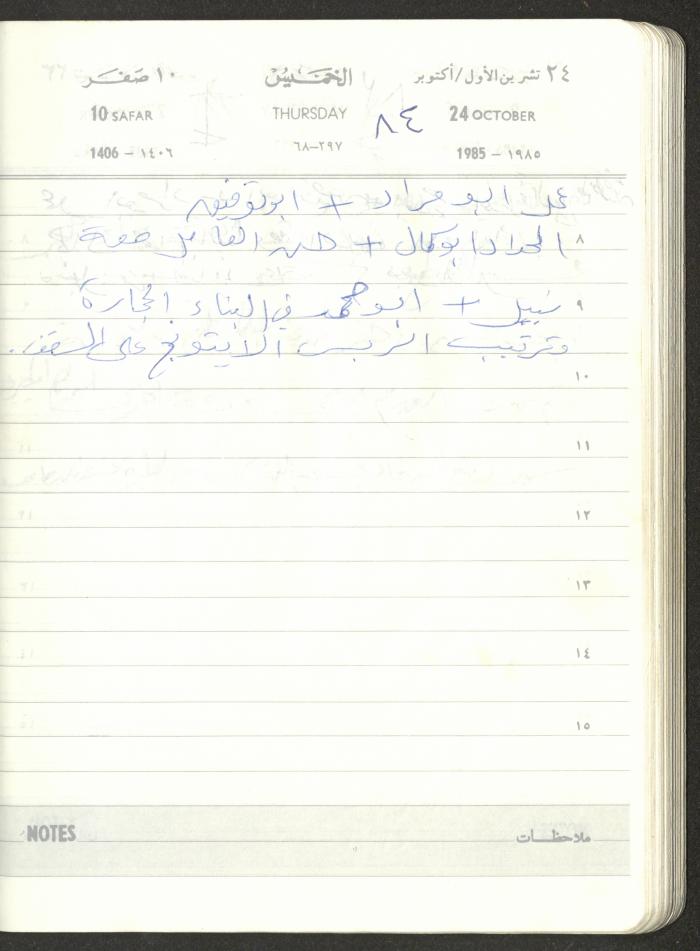 ٢٤ تشرين الأول/أكتوبر الخميس ١٠ صفر
24 OCTOBER THURSDAY 10 SAFAR
٨٤
1985 – ١٩٨٥ ٦٨–٢٩٧ 1406 – ١٤٠٦
عمل ابو مراد + ابو توفيق
٨ الحداد ابو كمال +
٩ نبيل + ابو محمد في البناء الحجارة
وترتيب على السقف.
١٠
١١
١٢
١٣
١٤
١٥
NOTES ملاحظات